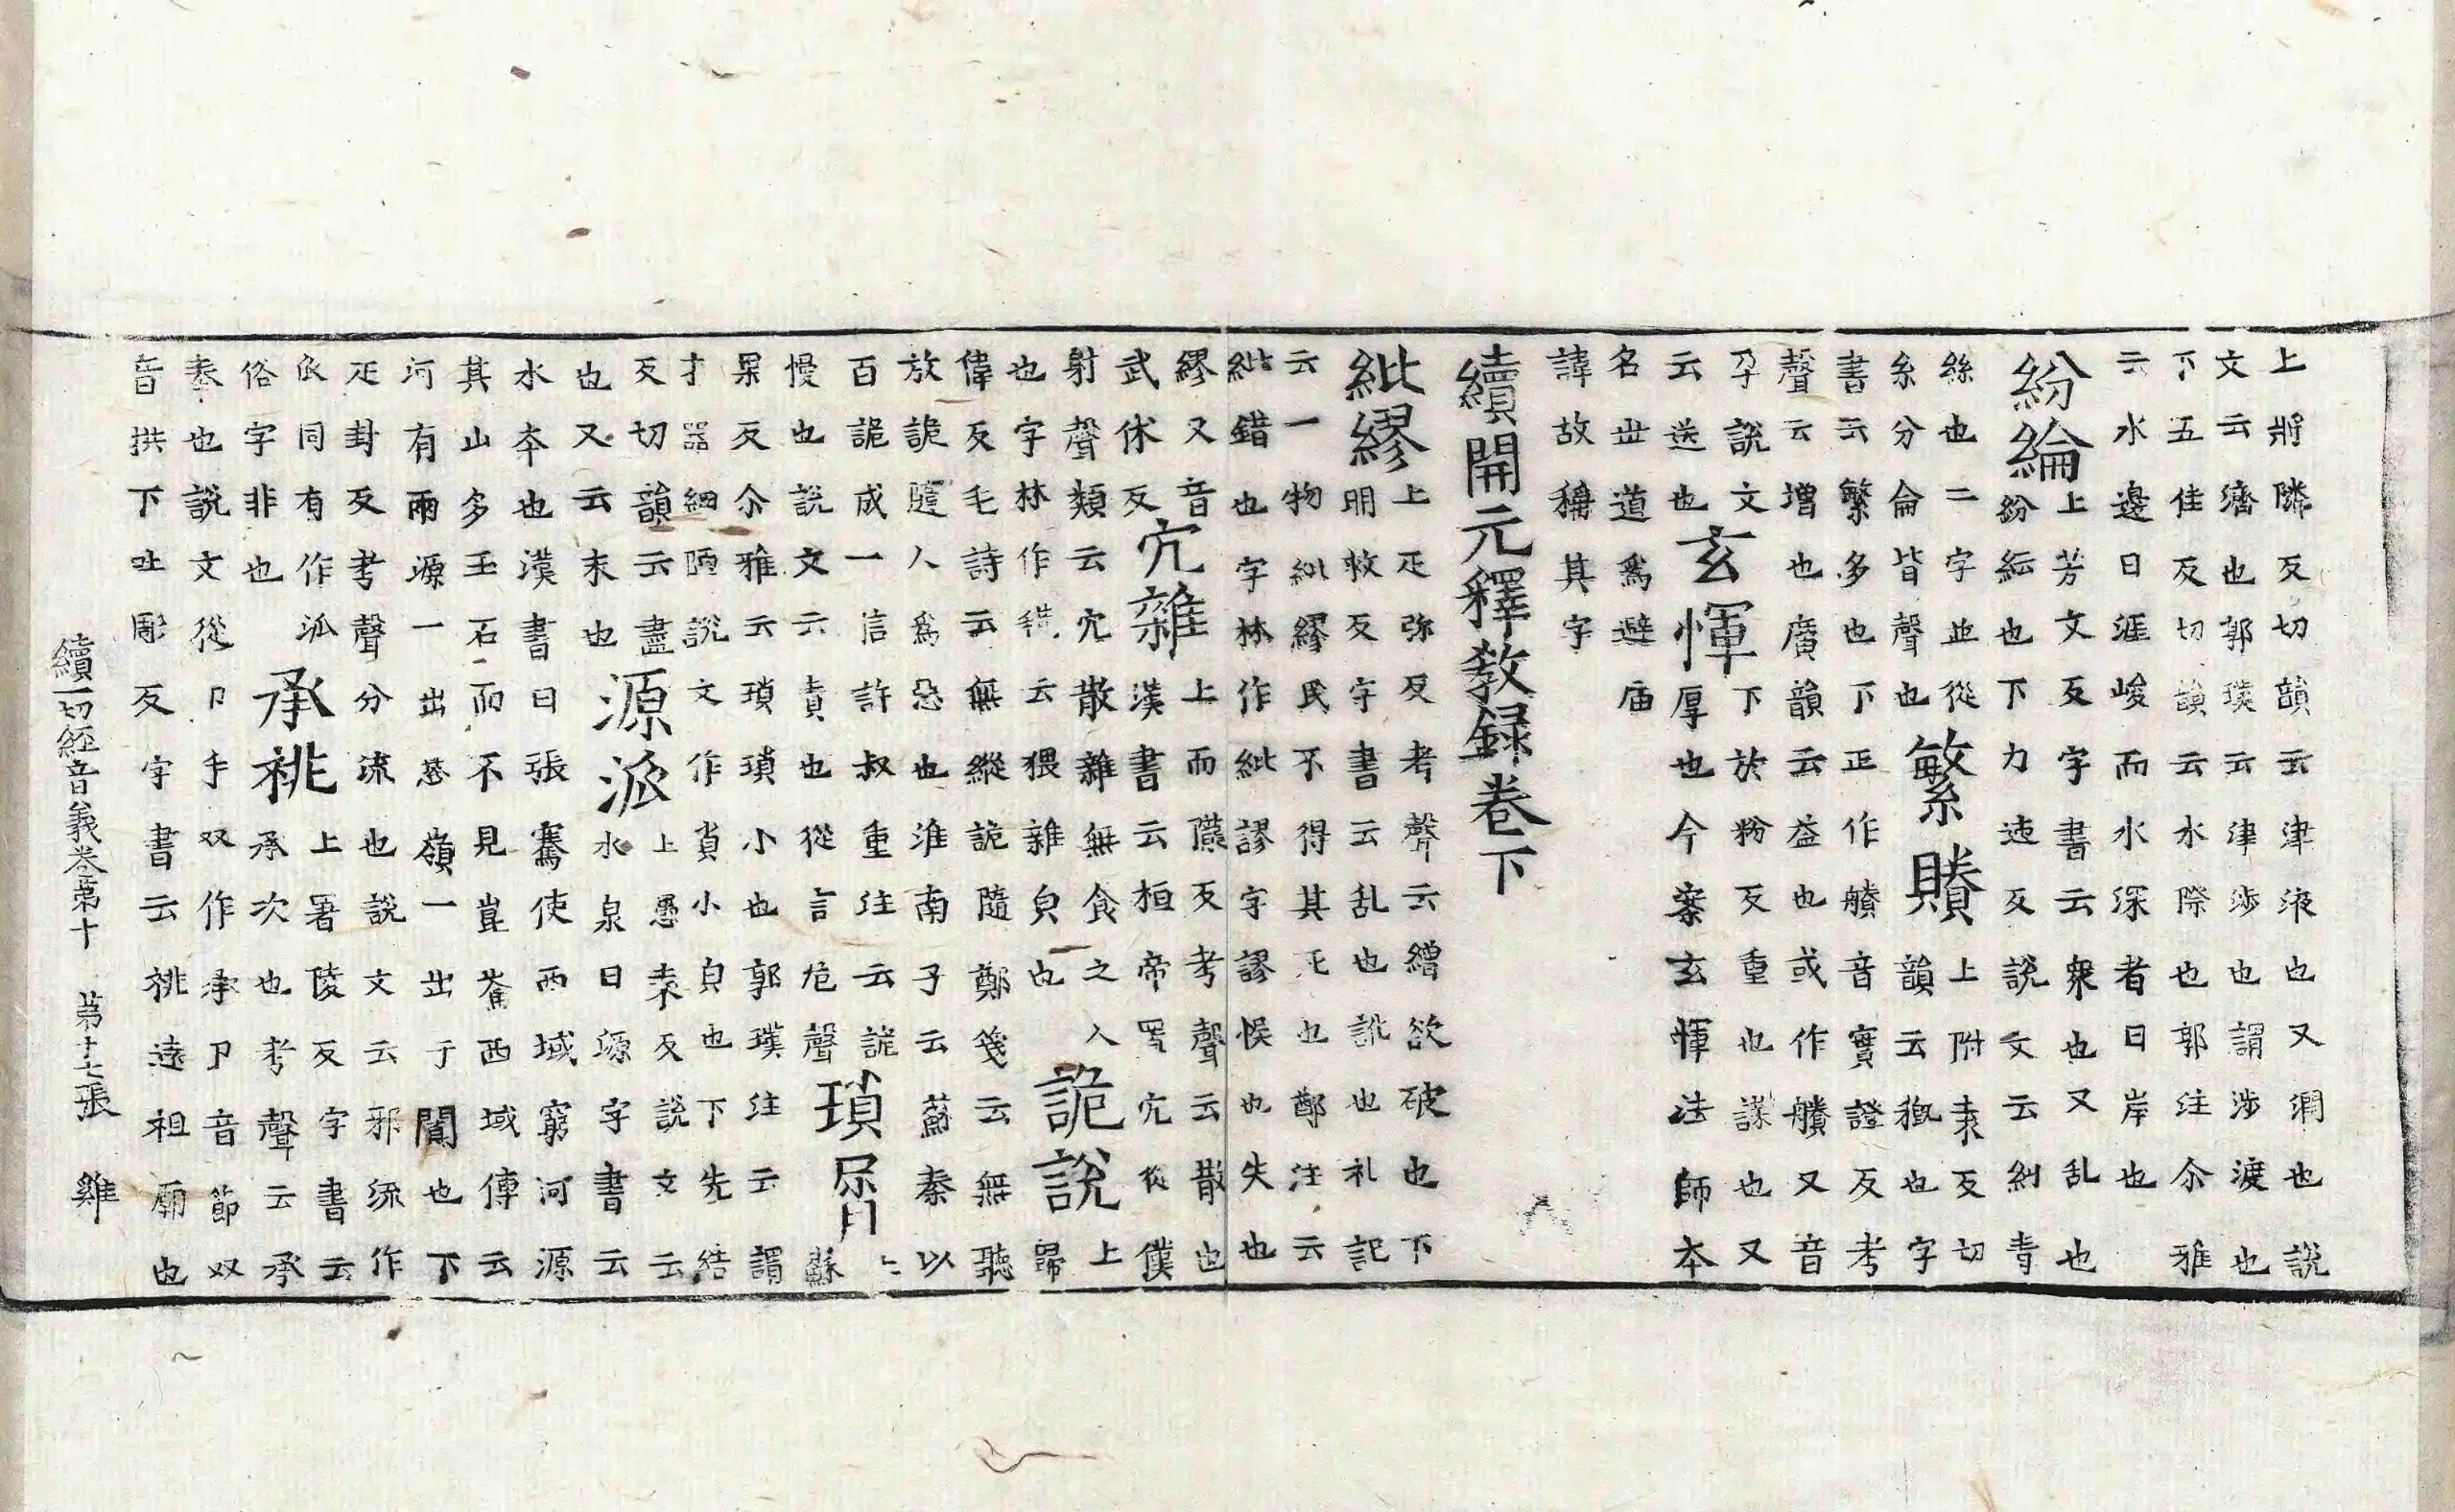 上將隣反切韻云津液也又潤也說
文云濟也郭璞云津涉也謂涉渡也
下五佳反切韻云水際也郭注尒雅
云水邊曰涯峻而水深者曰岸也
紛綸
上芳文反字書云衆也又乱也
紛紜也下力迍反說文云糾青
絲也二字並從
糸分侖皆聲也
繁賸
上附袁反切
韻云穊也字
書云繁多也下正作賸音實證反考
聲云增也廣韻云益也或作賸又音
孕說文
云送也
玄惲
下於粉反重也謀也又
厚也今案玄惲法師本
名丗道爲避庙
諱故稱其字
續開元釋教録卷下
紕繆
上疋弥反考聲云繒欲破也下
明救反字書云乱也訛也礼記
云一物紕繆民不得其死也鄭注云
紕錯也字林作紕謬字謬悞也失也
繆又音
武休反
宂雜
上而隴反考聲云散也
漢書云桓帝置宂從僕
射聲類云宂散雜無食之人
也字林作云猥雜皃也
詭說
上
歸
偉反毛詩云無縱詭隨鄭箋云無聽
放詭隨人爲惡也淮南子云蘇秦以
百詭成一信許叔重注云詭
慢也說文云責也從言危聲
瑣屑
上
蘇
果反尒雅云瑣瑣小也郭璞注云謂
才器細陋說文作𧴪小皃也下先結
反切韻云盡
也又云末也
源派
上愚袁反說文云
水泉曰源字書云
水本也漢書曰張騫使西域窮河源
其山多玉石而不見崑崙西域傳云
河有兩源一出葱嶺一出于闐也下
疋封反考聲分流也說文云邪流作
𠂢同有作泒
俗字非也
承祧
上署陵反字書云
承次也考聲云承
奉也說文從卩手収作承卩音節収
音拱下吐彫反字書云祧遠祖廟也
續一切經音義卷第十 第十七張 雞